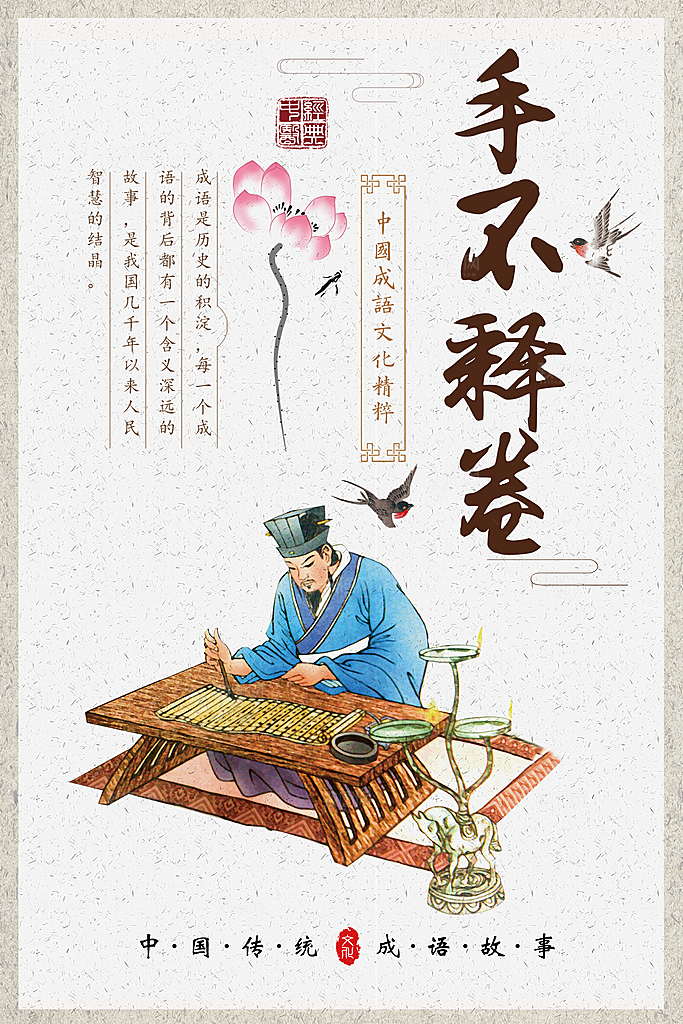 手不释卷
中國成語文化精粹
經典
中醫
成语是历史的积淀，每一个成
语的背后都有一个含义深远的
故事，是我国几千年以来人民
智慧的结晶。
中·国·传·统
文化
成·语·故·事